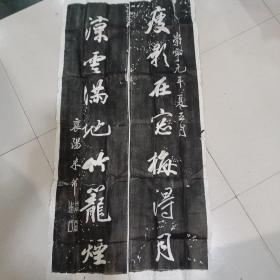 崇寧元年夏五月
瘦影在窓梅得月
涼雲滿地竹籠煙
襄陽米芾